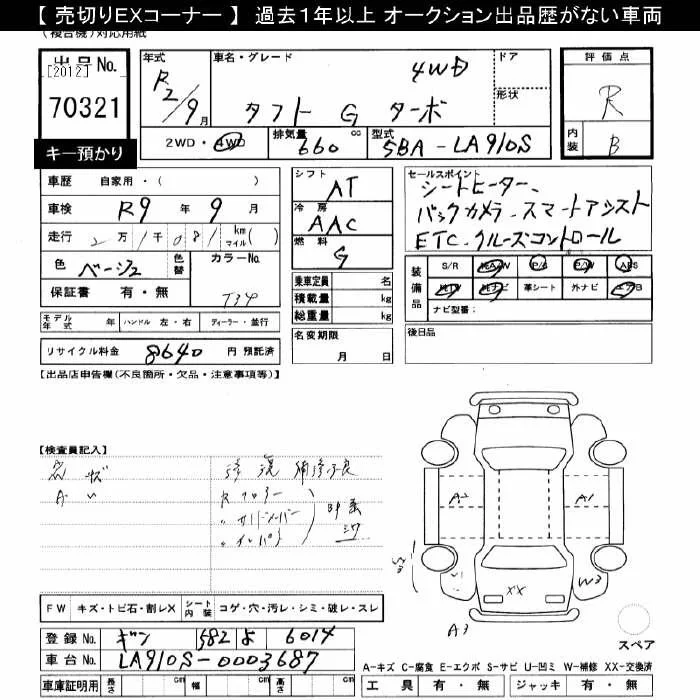 【 売切りEXコーナー 】 過去１年以上 オークション出品歴がない車両
(複合機)対応用紙
出品No.
[2012]
70321
キー預かり
年式
R2/9月
車名・グレード
タフト G ターボ 4WD
ドア
形状
2WD・4WD
排気量
660 cc
型式
5BA-LA910S
評価点
R
内装
B
車歴 自家用・( )
車検 R9 年 9 月
走行 2万1千081 km マイル( )
色 ベージュ
色替
カラーNo.
T34
保証書 有・無
モデル年式 年 ハンドル 左・右 ディーラー・並行
リサイクル料金 8640 円 預託済
シフト
AT
冷房
AAC
燃料
G
乗車定員 名
積載量 kg
総重量 kg
名変期限
月 日
セールスポイント
シートヒーター、
バックカメラ、スマートアシスト
ETC、クルーズコントロール
装備品
S/R 純AW P/S P/W ABS
純TV 純ナビ 革シート 外ナビ エアB
ナビ型番：
後日品
【出品店申告欄(不良箇所・欠品・注意事項等)】
【検査員記入】
R フロアー
〃 サイドメンバー
〃 インパネ
A2
A1
W3
XX
A3
スペア
FW キズ・トビ石・割レX シート内装 コゲ・穴・汚レ・シミ・破レ・スレ
登録 No. ギン 582 よ 6014
車台 No. LA910S-0003687
車庫証明用 長さ cm 幅 cm 高さ cm
A-キズ C-腐食 E-エクボ S-サビ U-凹ミ W-補修 XX-交換済
工具 有・無 ジャッキ 有・無